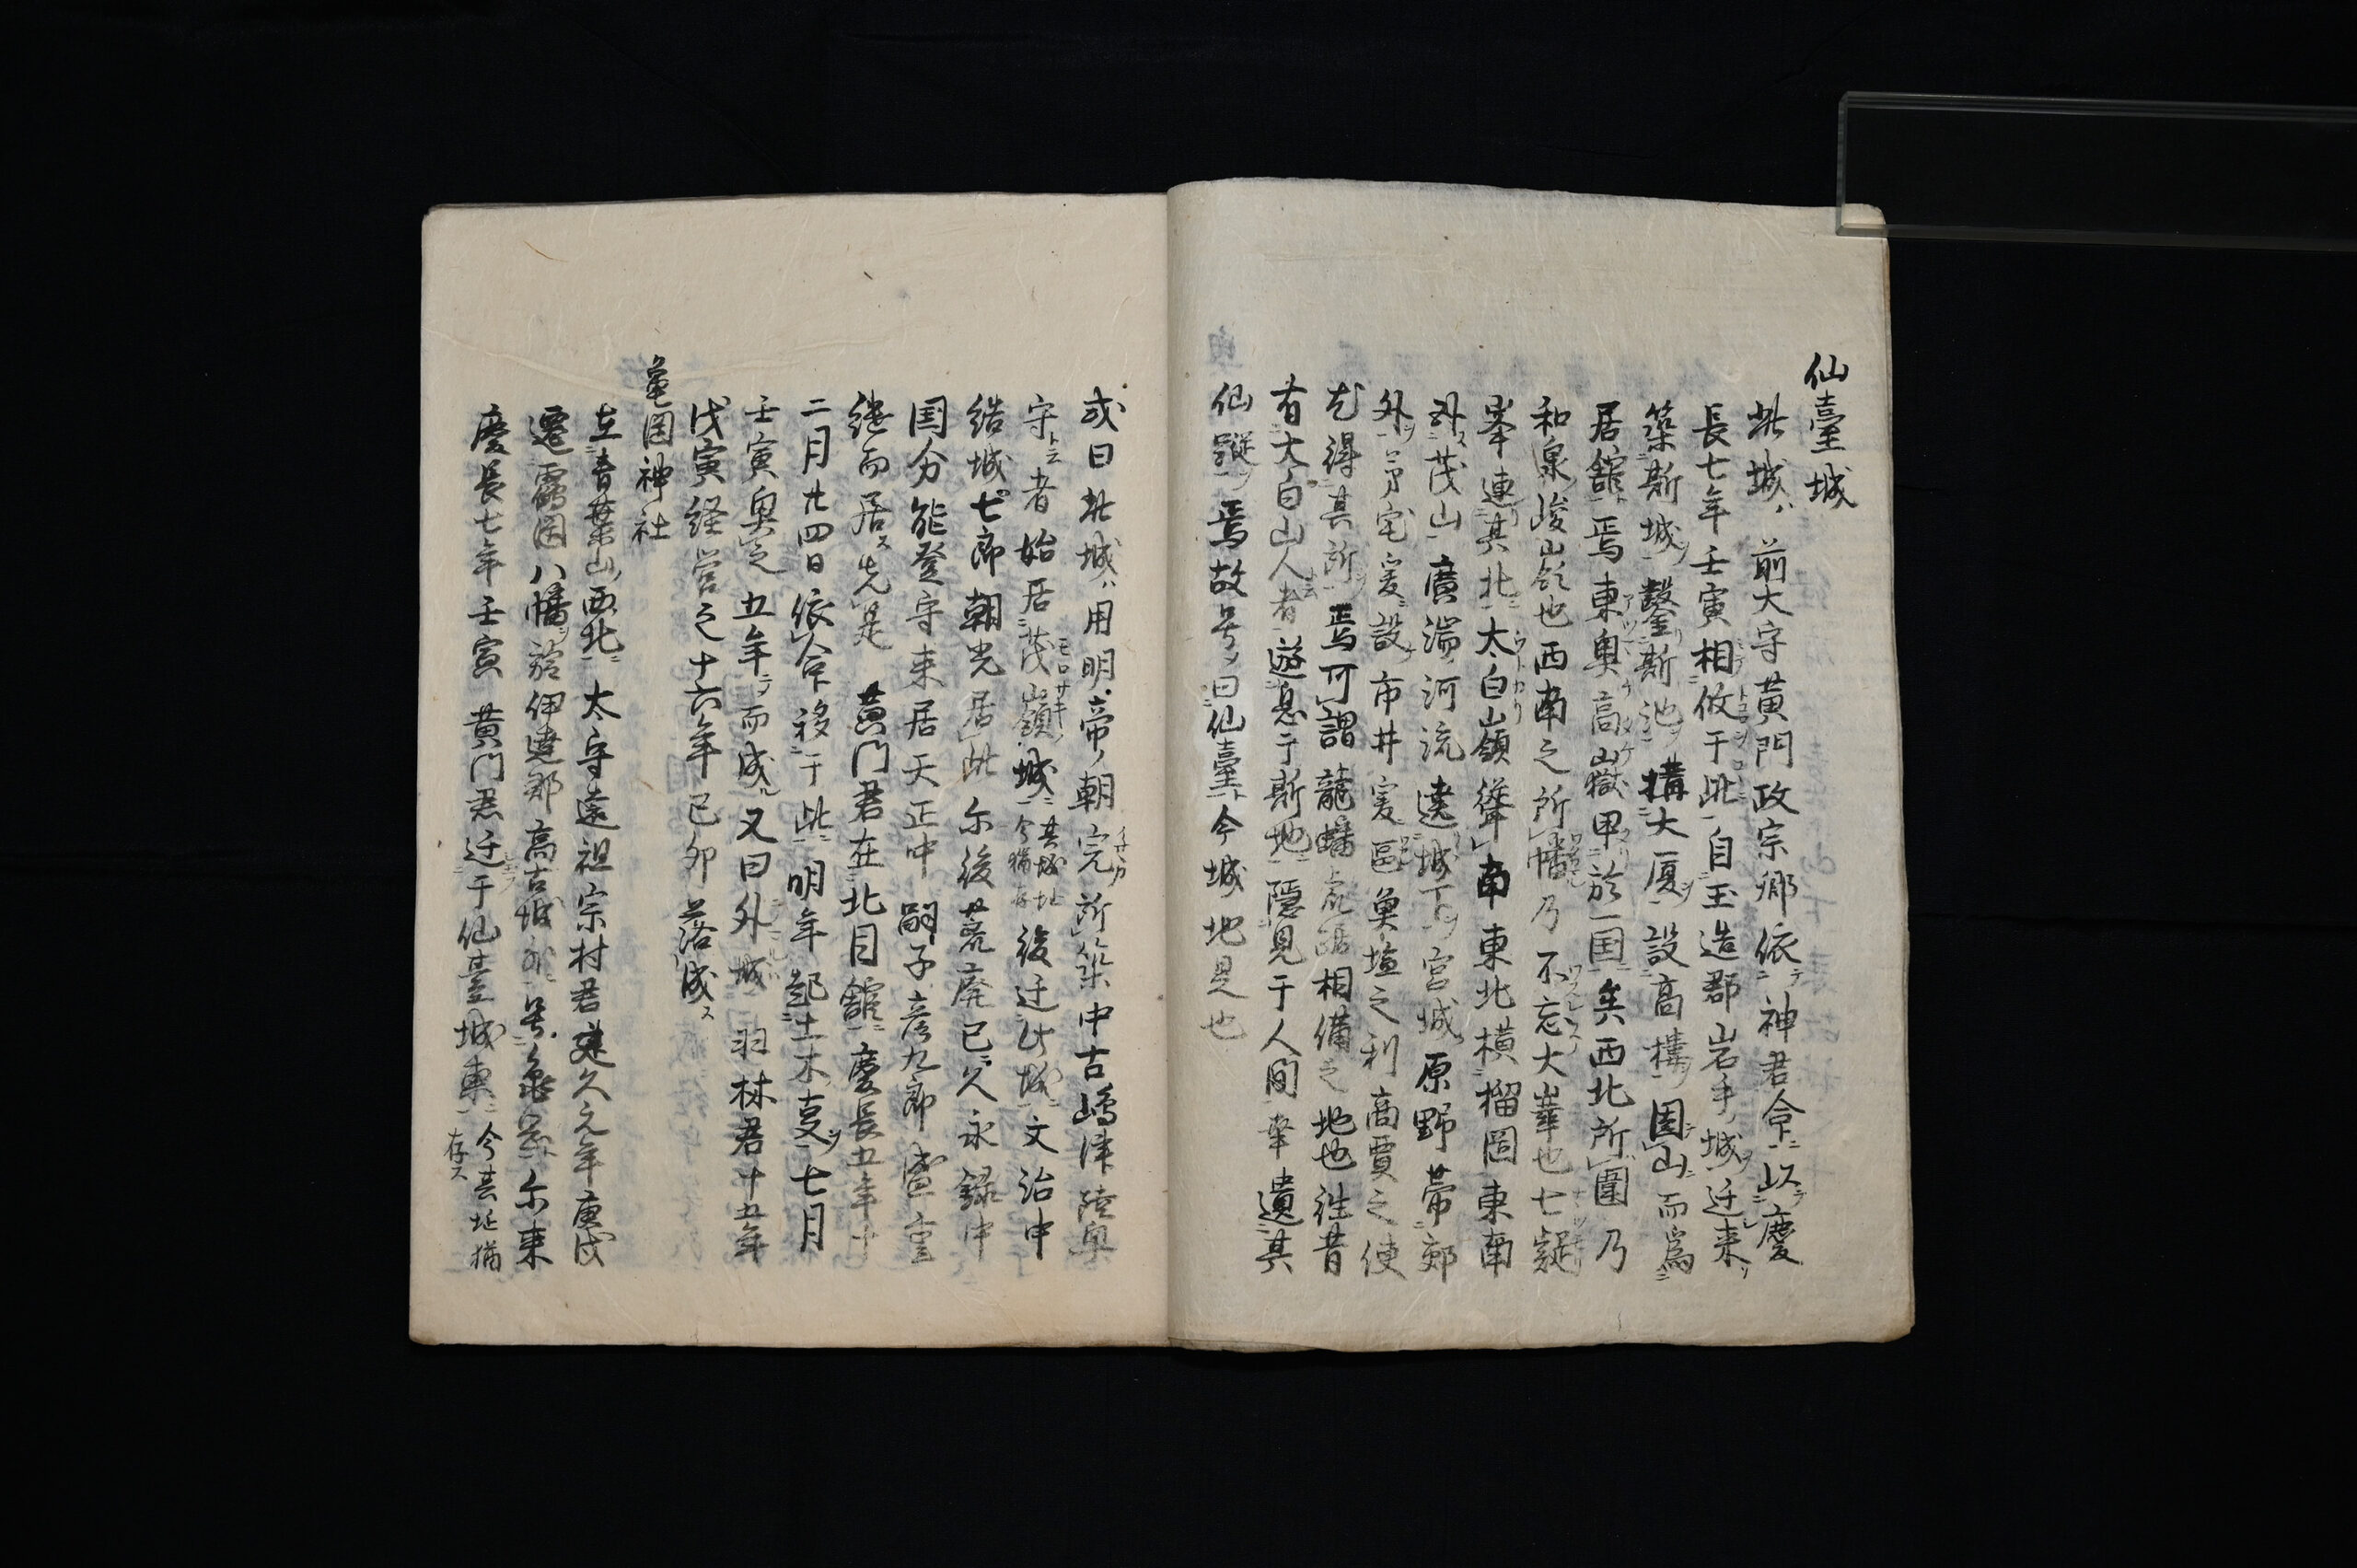 仙臺城
此城ハ前大守黃門政宗卿依テ神君命ニ以テ慶
長七年壬寅相攸于此自玉造郡岩手城迁来
築斯城鑿斯池構大厦設高樓因山而爲
居舘焉東奥高山嶽甲於一国矣西北所圍乃
和泉峻山嶺也西南之所幡乃不忘大峯也七
峯連其北太白山嶺聳南東北横榴岡東南
茂山廣湍河流遶城下宮城原野帯郊
外宅爰設市井寔區奥塩之利商賈之使
尤得其所焉可謂龍蟠虎踞相備之地也徃昔
有大白山人者遊息于斯地隠見于人間率遺其
仙蹤焉故号曰仙臺今城地是也
或曰此城ハ用明帝ノ朝完所築中古嶋津陸奥
守ト云者始居茂嶺城其城址今猶存後迁此城文治中
結城七郎朝光居此尓後荒廃已久永録中
国分能登守来居天正中嗣子彦九郎盛重
継而居先是 黃門君在北目舘慶長五年十
二月廿四日依命移于此明年起土木戛七月
壬寅奥之五年ニメ而成又曰外城羽林君十五年
戊寅経営之十六年己卯落成ス
亀囯神社
在青葉山西北太守遠祖宗村君建久元年庚戌
遷靍岡八幡於伊達郡高古城外号亀岡尓来
慶長七年壬寅 黃門君迁于仙臺城東今其址猶
存ス